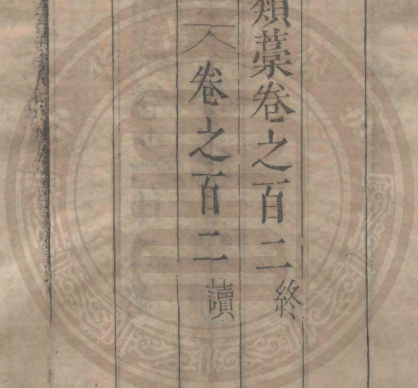 類藁卷之百二終
卷之百二讀